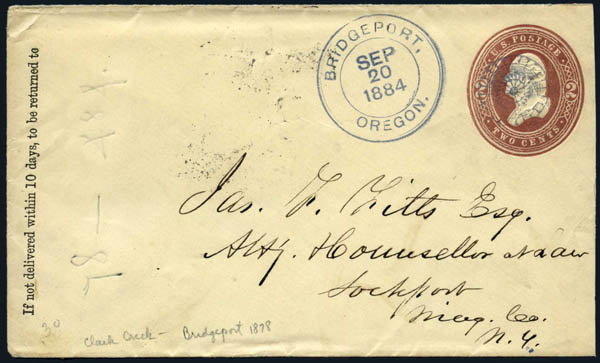 If not delivered within 10 days, to be returned to
BRIDGEPORT,
SEP
20
1884
OREGON.
U.S. POSTAGE
TWO CENTS
2
2
Jas. F. Fitts Esq.
Atty. Hounsellor at Law
Lockport
Niag. Co.
N.Y.
78 —
3⁰
Clark Creek — Bridgeport 1878